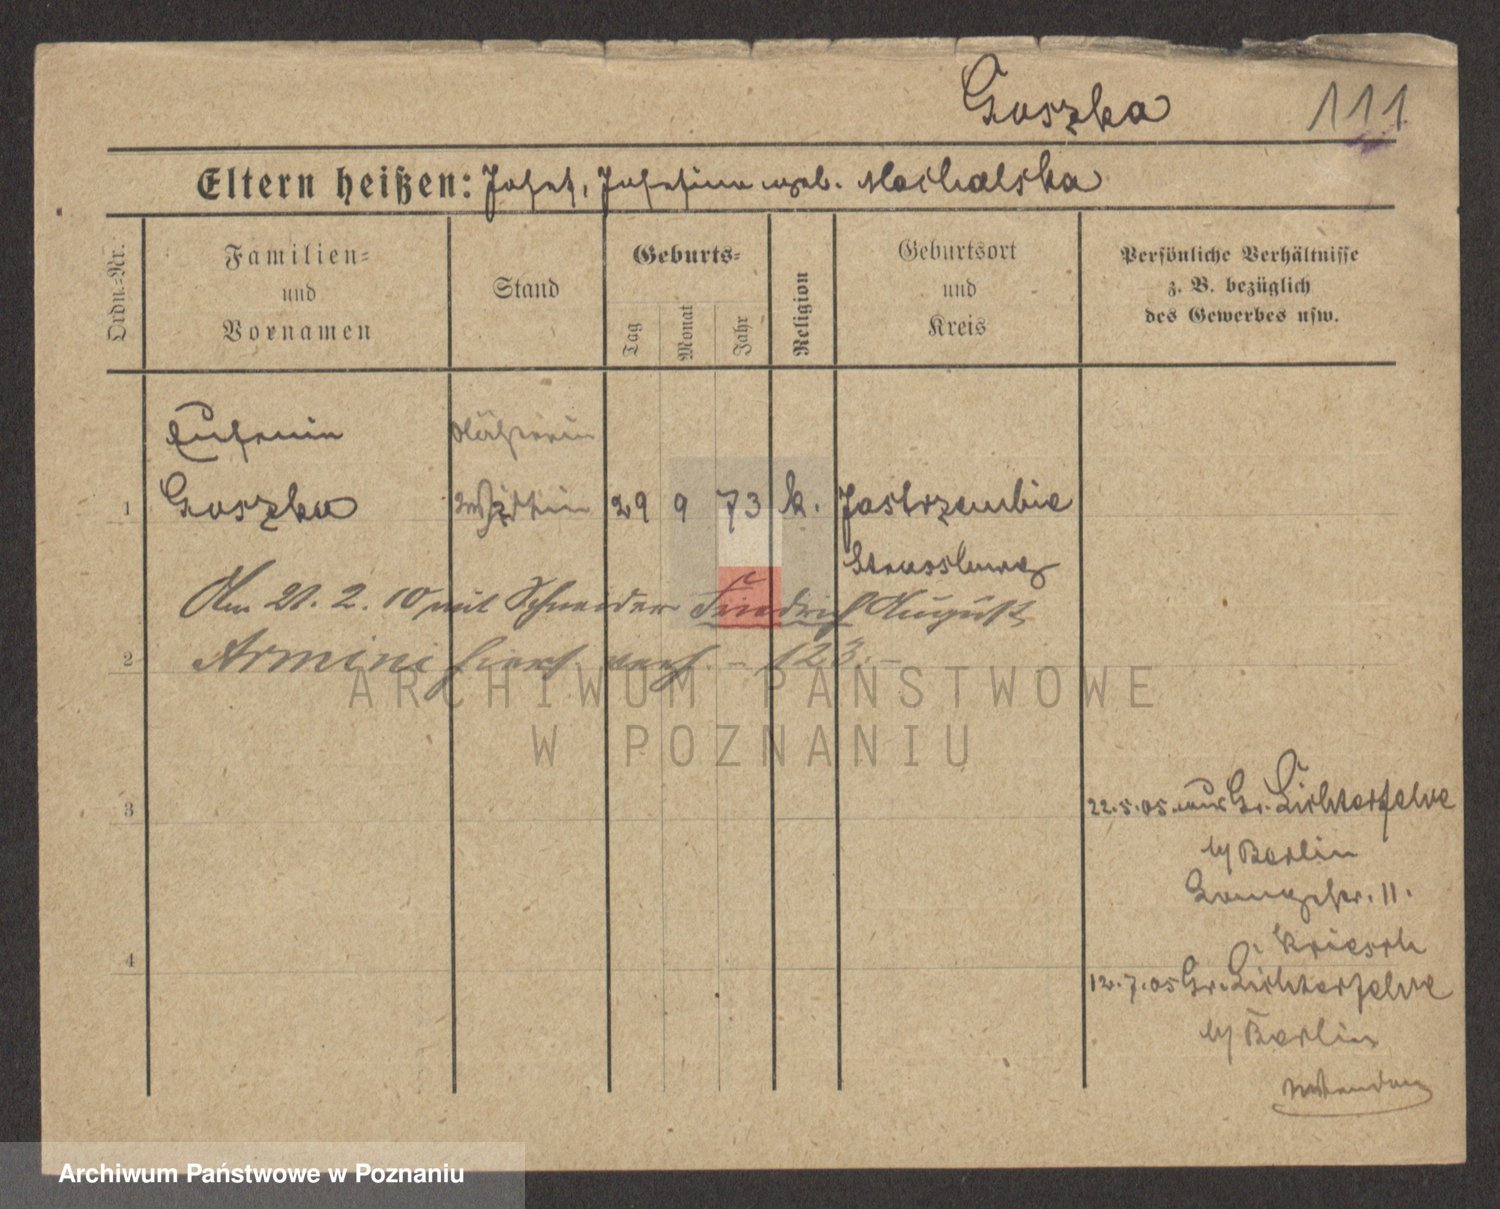 Goszka 111
Eltern heißen: Josef, Josefina geb. Michalska
Ordn.-Nr.
Familien-
und
Vornamen
Stand
Geburts-
Tag
Monat
Jahr
Religion
Geburtsort
und
Kreis
Persönliche Verhältnisse
z. B. bezüglich
des Gewerbes usw.
Näherin
1 Goszka 29 9 73 k. Jastrzembie
Strassburg
Am 21. 2. 10 mit Schneider Friedrich August
2 Armini hier verh. – 123. –
ARCHIWUM PAŃSTWOWE
W POZNANIU
3 22.5.05 aus Gr. Lichterfelde
b/ Berlin
11.
4 12.7.05 Gr. Lichterfelde
b/ Berlin
Archiwum Państwowe w Poznaniu